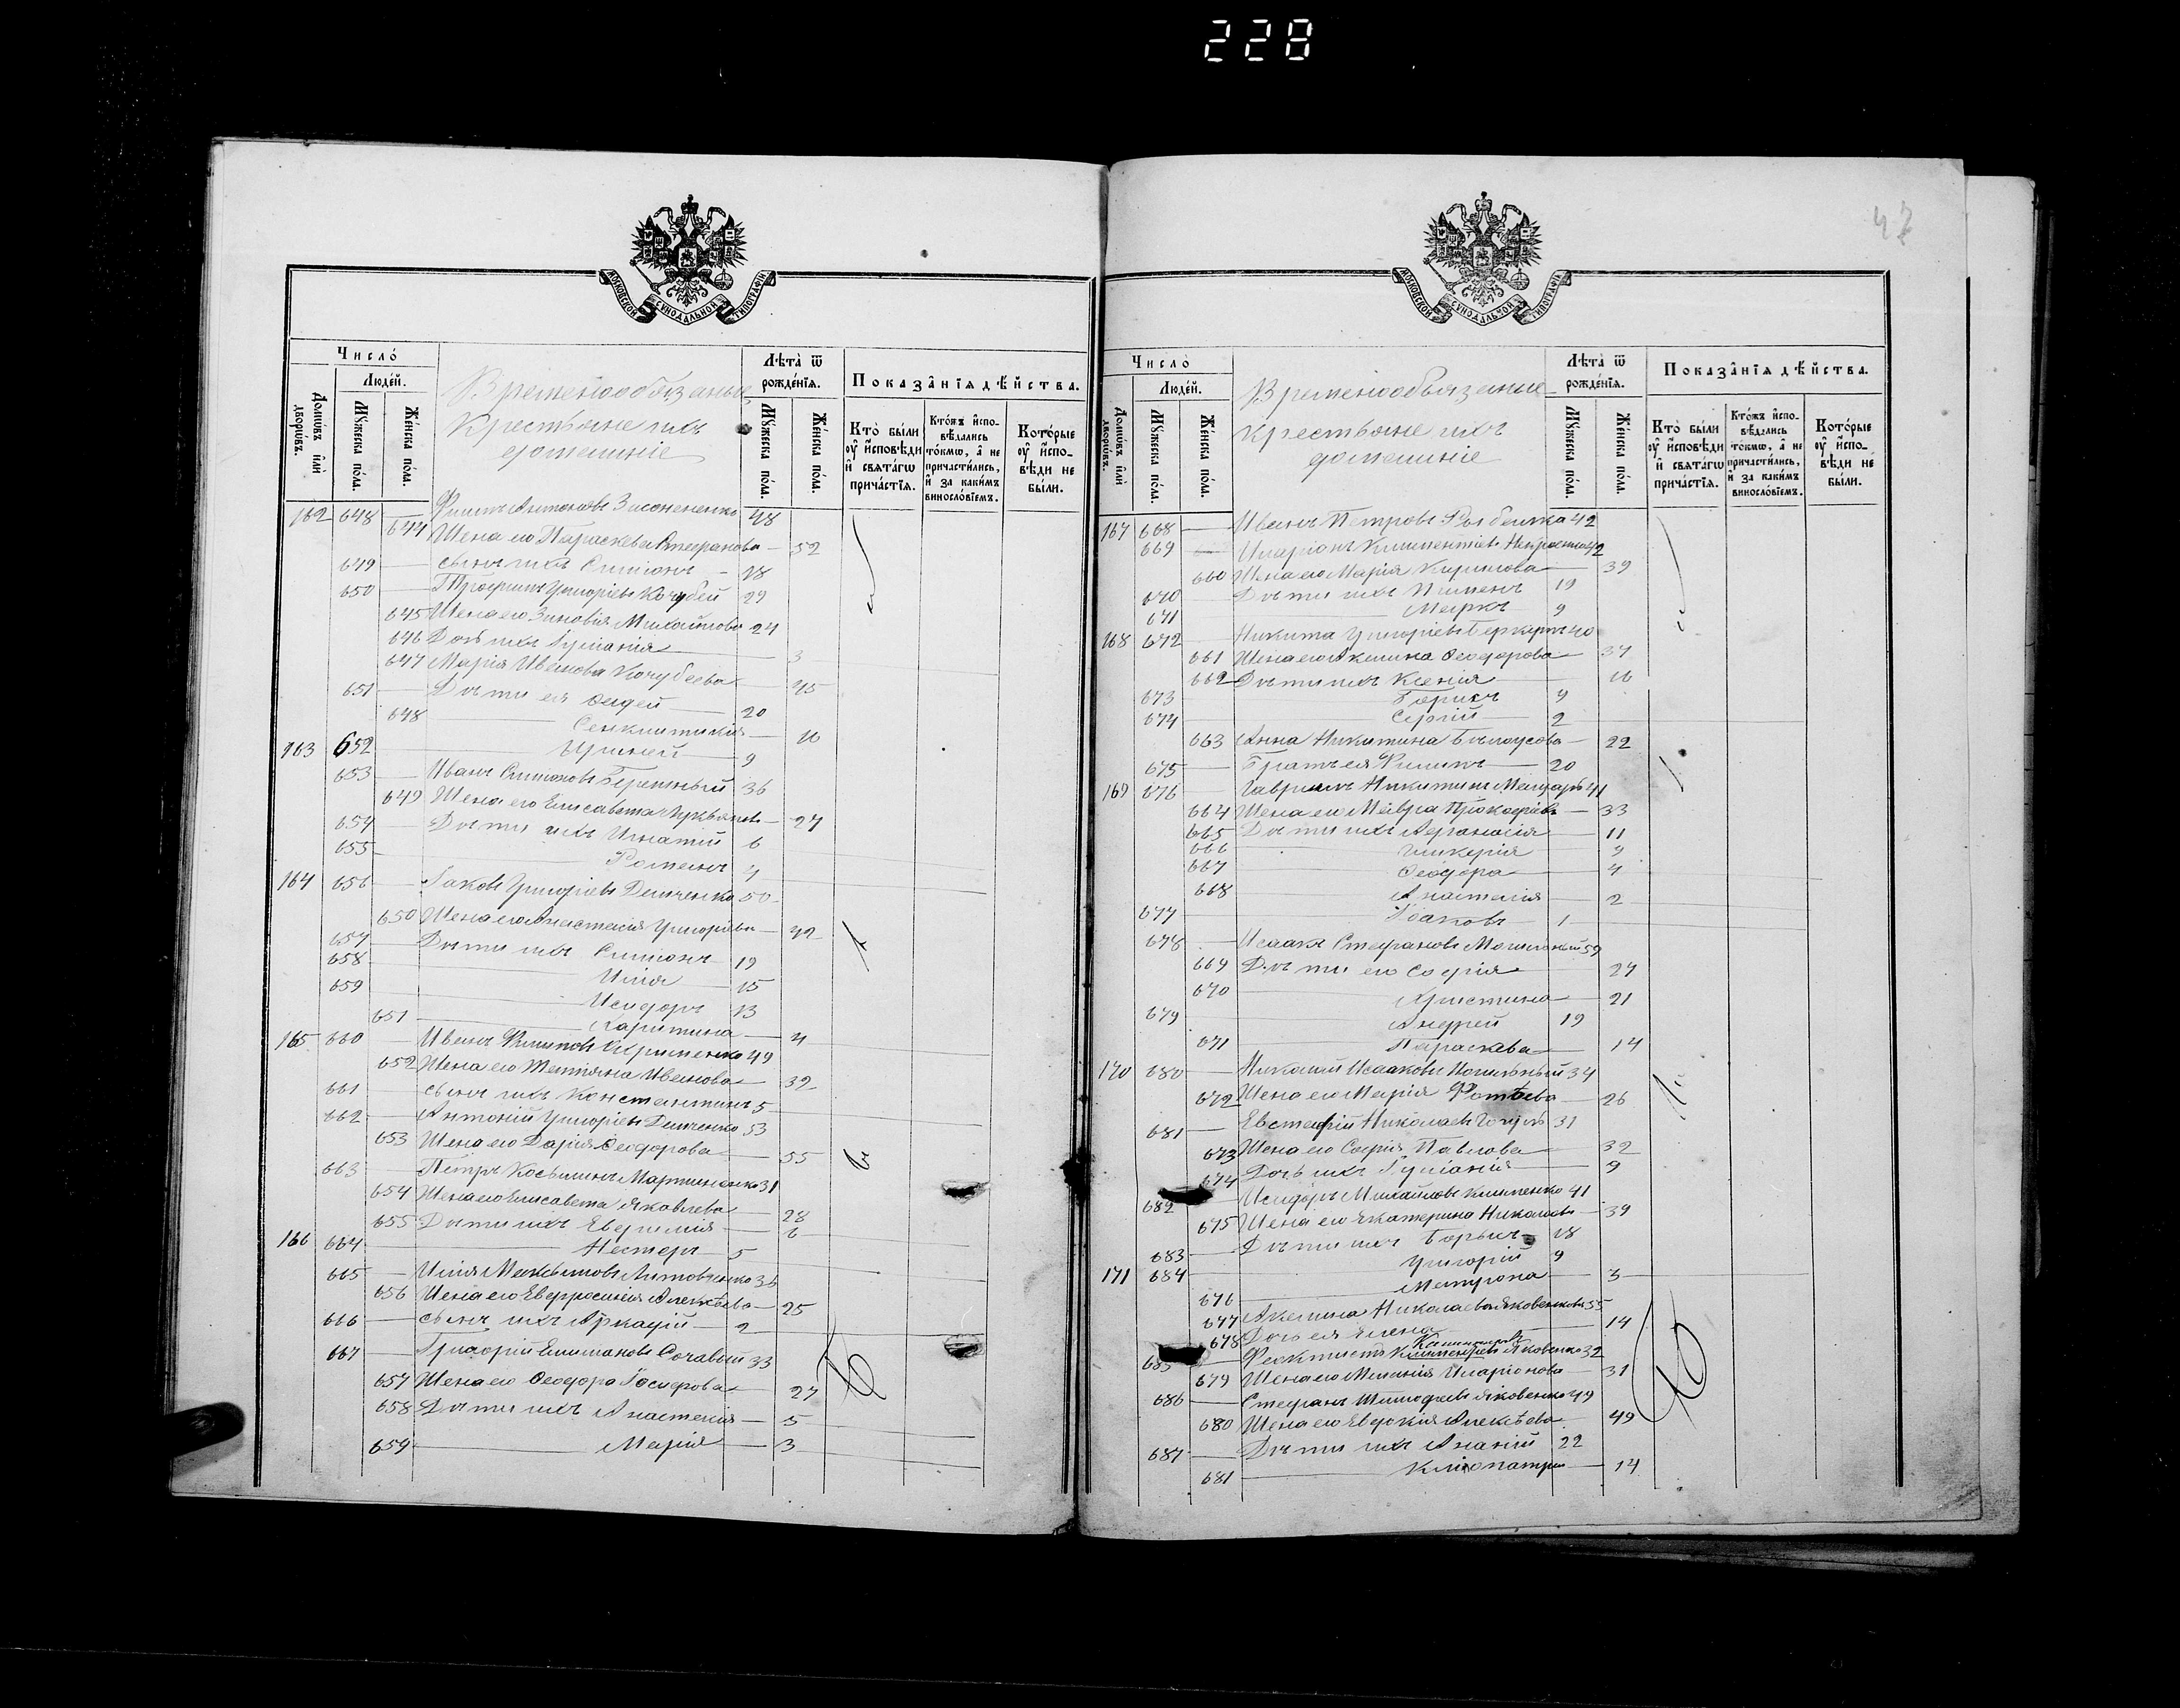 228
47
МОСКОВСКОЙ СѴНОДАЛЬНОЙ ТИПОГРАФІИ
Число̀
Людей.
Домѡвъ илѝ дворѡвъ.
Мꙋжеска пола.
Женска пола.
Временообязаные
Крестьяне ихъ
домашніе
Лѣта̀ ѿ рожденїѧ.
Мꙋжеска пола.
Женска пола.
Показанїѧ дѣйства.
Кто̀ были оу҆ исповѣди и҆ свѧтагѡ причастїѧ.
Ктожъ исповѣдались токмѡ, а҆ не причастились, и҆ за какимъ винословїемъ.
Которые оу҆ исповѣди не были.
162 648 Филипъ Антоновъ 48
644 Жена его Параскева Стефанова 52
649 сынъ ихъ Симеонъ 18
650 Трофимъ Григоріевъ Кочубей 29
645 Жена его Зиновія Михайлова 24
646 Дочь ихъ Іуліанія 3
647 Марія Иванова Кочубеева 45
651 Дѣти ея 20
648 16
163 652 Ириней 9
653 Иванъ Симеоновъ Бережный 36
649 Жена его Елисавета Лукьянов 27
654 Дѣти ихъ Игнатій 6
655 Романъ 4
164 656 Іаковъ Григоріевъ Демченко 50
650 Жена его Анастасія Григоріева 42
657 Дѣти ихъ Симеонъ 19
658 Илія 15
659 Исидоръ 13
651 Харитина 4
165 660 Иванъ Филиповъ 49
652 Жена его Татіяна Иванова 39
661 сынъ ихъ Константинъ 5
662 Антоній Григоріевъ Демченко 53
653 Жена его Дарія Ѳеодорова 55
663 Петръ Косьминъ Мартиненко 31
654 Жена его Елисавета Яковлева 28
655 Дѣти ихъ Евфимія 6
166 664 Несторъ 5
665 Илія Максимовъ Литовченко 36
656 Жена его Евфросинія Алексѣева 25
666 сынъ ихъ Аркадій 2
667 Григорій Сочавый 33
657 Жена его Ѳеодора Іосифова 27
658 Дѣти ихъ Анастасія 5
659 Марія 3
МОСКОВСКОЙ СѴНОДАЛЬНОЙ ТИПОГРАФІИ
Число̀
Людей.
Домѡвъ илѝ дворѡвъ.
Мꙋжеска пола.
Женска пола.
Временообьязаные
крестьяне ихъ
домашніе
Лѣта̀ ѿ рожденїѧ.
Мꙋжеска пола.
Женска пола.
Показанїѧ дѣйства.
Кто̀ были оу҆ исповѣди и҆ свѧтагѡ причастїѧ.
Ктожъ исповѣдались токмѡ, а҆ не причастились, и҆ за какимъ винословїемъ.
Которые оу҆ исповѣди не были.
167 668 Иванъ Петровъ 42
669 Иларіонъ Климентіевъ 42
660 Жена его Марія Кирилова 39
670 Дѣти ихъ Пименъ 19
671 Маркъ 9
168 672 Никита Григоріевъ 40
661 Жена его Акилина Ѳеодорова 37
662 Дѣти ихъ Ксенія 16
673 Борисъ 9
674 Сергій 2
663 Анна Никитина Бѣлоусова 22
675 Братъ ея Филипъ 20
169 676 Гавріилъ Никитинъ 41
664 Жена его Мавра Прокофіева 33
665 Дѣти ихъ Афанасія 11
666 Гликерія 9
667 Ѳеодора 4
668 Анастасія 2
677 Іоаковъ 1
678 Исаакъ Стефановъ 59
669 Дѣти его Софія 27
670 Христина 21
679 Андрей 19
671 Параскева 14
170 680 Исааковъ 34
672 Жена его Марія 26
681 Евстафій Николаевъ 31
673 Жена его Софія Павлова 32
674 Дочь ихъ Іуліанія 9
682 Исидоръ Михайловъ Клименко 41
675 Жена его Екатерина Николаева 39
683 Дѣти ихъ Борисъ 18
171 684 Григорій 9
676 Матрона 3
677 Акилина Николаева Яковенкова 55
678 Дочь ея Елена 14
685 Феоктистъ Яковенко 32
679 Жена его Меланія Иларіонова 31
686 Стефанъ Тимофеевъ Яковенко 49
680 Жена его Евдокія Алексѣева 49
687 Дѣти ихъ Ананій 22
681 Клеопатра 14